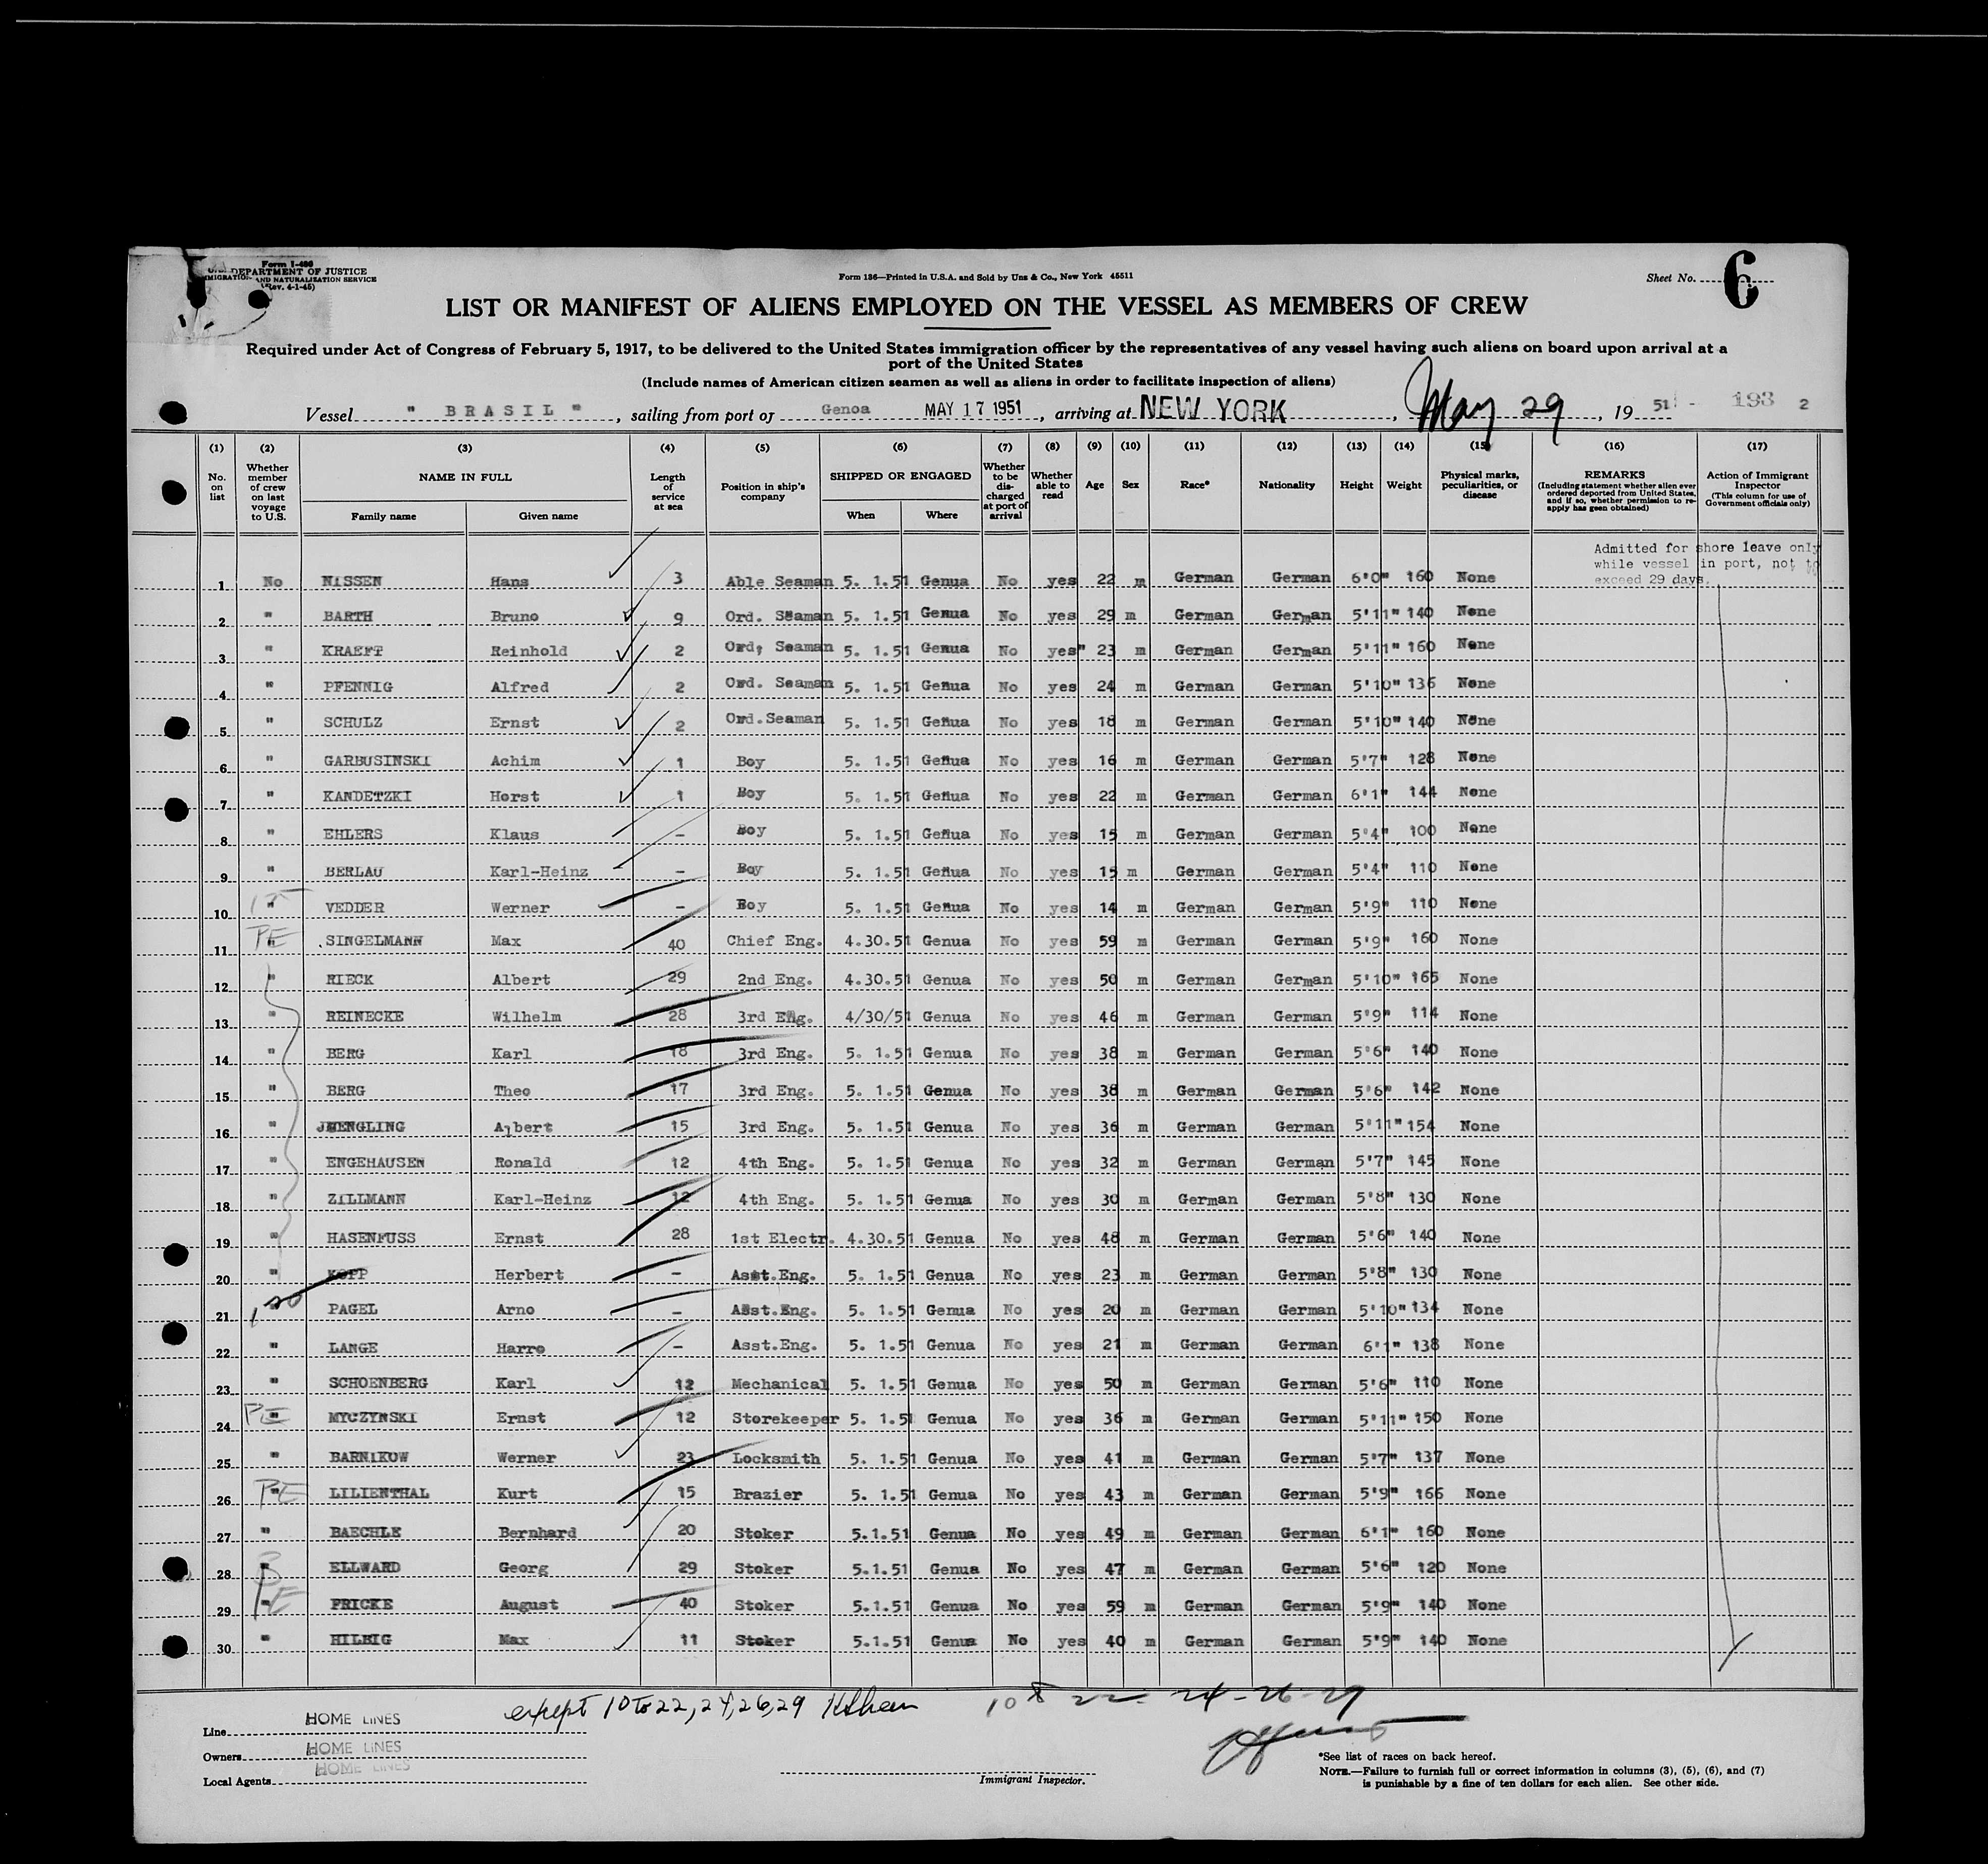 Form I-486
U.S. DEPARTMENT OF JUSTICE
IMMIGRATION AND NATURALIZATION SERVICE
(Rev. 4-1-45)
Form 136—Printed in U.S.A. and Sold by Unz & Co., New York 45511
Sheet No. 6
LIST OR MANIFEST OF ALIENS EMPLOYED ON THE VESSEL AS MEMBERS OF CREW
Required under Act of Congress of February 5, 1917, to be delivered to the United States immigration officer by the representatives of any vessel having such aliens on board upon arrival at a
port of the United States
(Include names of American citizen seamen as well as aliens in order to facilitate inspection of aliens)
Vessel " BRASIL ", sailing from port of Genoa MAY 17 1951, arriving at NEW YORK, May 29, 1951 - 193 2
(1) (2) (3) (4) (5) (6) (7) (8) (9) (10) (11) (12) (13) (14) (15) (16) (17)
No. on list
Whether member of crew on last voyage to U.S.
NAME IN FULL
Family name Given name
Length of service at sea
Position in ship's company
SHIPPED OR ENGAGED
When Where
Whether to be discharged at port of arrival
Whether able to read
Age
Sex
Race*
Nationality
Height
Weight
Physical marks, peculiarities, or disease
REMARKS
(Including statement whether alien ever ordered deported from United States, and if so, whether permission to re-apply has geen obtained)
Action of Immigrant Inspector
(This column for use of Government officials only)
Admitted for shore leave only
while vessel in port, not to
exceed 29 days.
1 No NISSEN Hans 3 Able Seaman 5. 1.51 Genua No yes 22 m German German 6'0" 160 None
2 " BARTH Bruno 9 Ord. Seaman 5. 1.51 Genua No yes 29 m German German 5'11" 140 None
3 " KRAEFT Reinhold 2 Ord, Seaman 5. 1.51 Genua No yes" 23 m German German 5'11" 160 None
4 " PFENNIG Alfred 2 Ord. Seaman 5. 1.51 Genua No yes 24 m German German 5'10" 136 None
5 " SCHULZ Ernst 2 Ord.Seaman 5. 1.51 Genua No yes 18 m German German 5'10" 140 None
6 " GARBUSINSKI Achim 1 Boy 5. 1.51 Genua No yes 16 m German German 5'7" 128 None
7 " KANDETZKI Horst 1 Boy 5. 1.51 Genua No yes 22 m German German 6'1" 144 None
8 " EHLERS Klaus - Boy 5. 1.51 Genua No yes 15 m German German 5'4" 100 None
9 " BERLAU Karl-Heinz - Boy 5. 1.51 Genua No yes 15 m German German 5'4" 110 None
10 " VEDDER Werner - Boy 5. 1.51 Genua No yes 14 m German German 5'9" 110 None
11 PE " SINGELMANN Max 40 Chief Eng. 4.30.51 Genua No yes 59 m German German 5'9" 160 None
12 " RIECK Albert 29 2nd Eng. 4.30.51 Genua No yes 50 m German German 5'10" 165 None
13 " REINECKE Wilhelm 28 3rd Eng. 4/30/51 Genua No yes 46 m German German 5'9" 114 None
14 " BERG Karl 18 3rd Eng. 5. 1.51 Genua No yes 38 m German German 5'6" 140 None
15 " BERG Theo 17 3rd Eng. 5. 1.51 Genua No yes 38 m German German 5'6" 142 None
16 " Albert 15 3rd Eng. 5. 1.51 Genua No yes 36 m German German 5'11" 154 None
17 " ENGEHAUSEN Ronald 12 4th Eng. 5. 1.51 Genua No yes 32 m German German 5'7" 145 None
18 " ZILLMANN Karl-Heinz 12 4th Eng. 5. 1.51 Genua No yes 30 m German German 5'8" 130 None
19 " HASENFUSS Ernst 28 1st Electr. 4.30.51 Genua No yes 48 m German German 5'6" 140 None
20 " KOPP Herbert - Asst.Eng. 5. 1.51 Genua No yes 23 m German German 5'8" 130 None
21 " PAGEL Arno - Asst.Eng. 5. 1.51 Genua No yes 20 m German German 5'10" 134 None
22 " LANGE Harro - Asst.Eng. 5. 1.51 Genua No yes 21 m German German 6'1" 138 None
23 " SCHOENBERG Karl 12 Mechanical 5. 1.51 Genua No yes 50 m German German 5'6" 110 None
24 PE " MYCZYNSKI Ernst 12 Storekeeper 5. 1.51 Genua No yes 36 m German German 5'11" 150 None
25 " BARNIKOW Werner 23 Locksmith 5. 1.51 Genua No yes 41 m German German 5'7" 137 None
26 PE " LILIENTHAL Kurt 15 Brazier 5. 1.51 Genua No yes 43 m German German 5'9" 166 None
27 " BAECHLE Bernhard 20 Stoker 5.1.51 Genua No yes 49 m German German 6'1" 160 None
28 " ELLWARD Georg 29 Stoker 5.1.51 Genua No yes 47 m German German 5'6" 120 None
29 PE " FRICKE August 40 Stoker 5.1.51 Genua No yes 59 m German German 5'9" 140 None
30 " HILBIG Max 11 Stoker 5.1.51 Genua No yes 40 m German German 5'9" 140 None
except 10 to 22, 24, 26, 29 10 22 - 24 - 26 - 29
Line HOME LINES
Owners HOME LINES
Local Agents HOME LINES
Immigrant Inspector.
*See list of races on back hereof.
NOTE.—Failure to furnish full or correct information in columns (3), (5), (6), and (7)
is punishable by a fine of ten dollars for each alien. See other side.